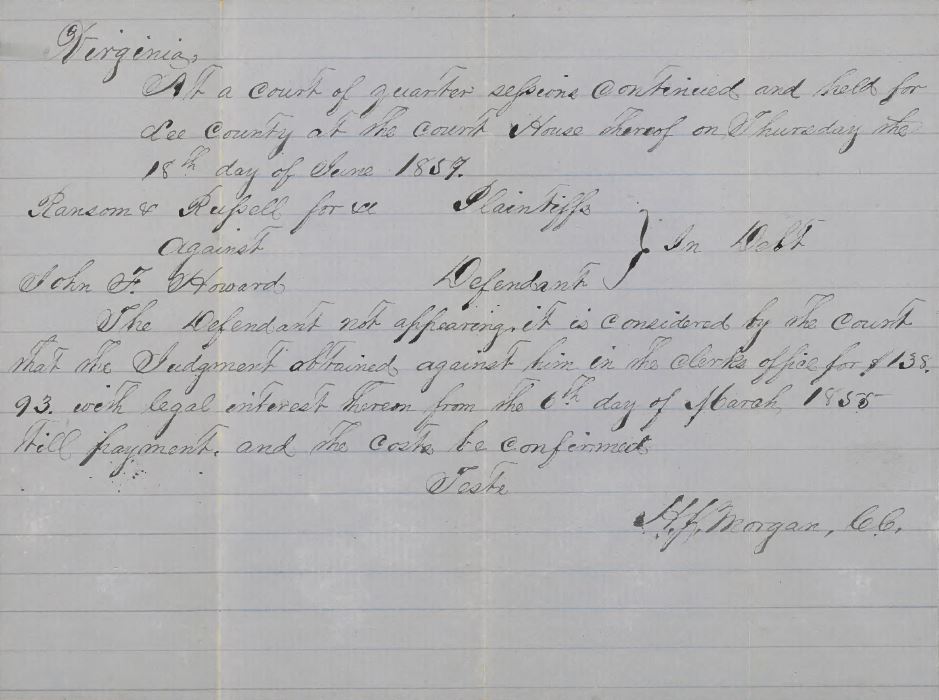 Virginia,
At a court of quarter sessions continued and held for
Lee County at the Court House thereof on Thursday the
18th day of June 1857.
Ransom & Russell for &c Plaintiffs
Against } In Debt
John F. Howard Defendant
The Defendant not appearing, it is considered by the Court
that the Judgment obtained against him in the clerks office for $138.
93. with legal interest thereon from the 6th day of March, 1855
till payment. and the costs be confirmed
Teste
H. J. Morgan, C.C.